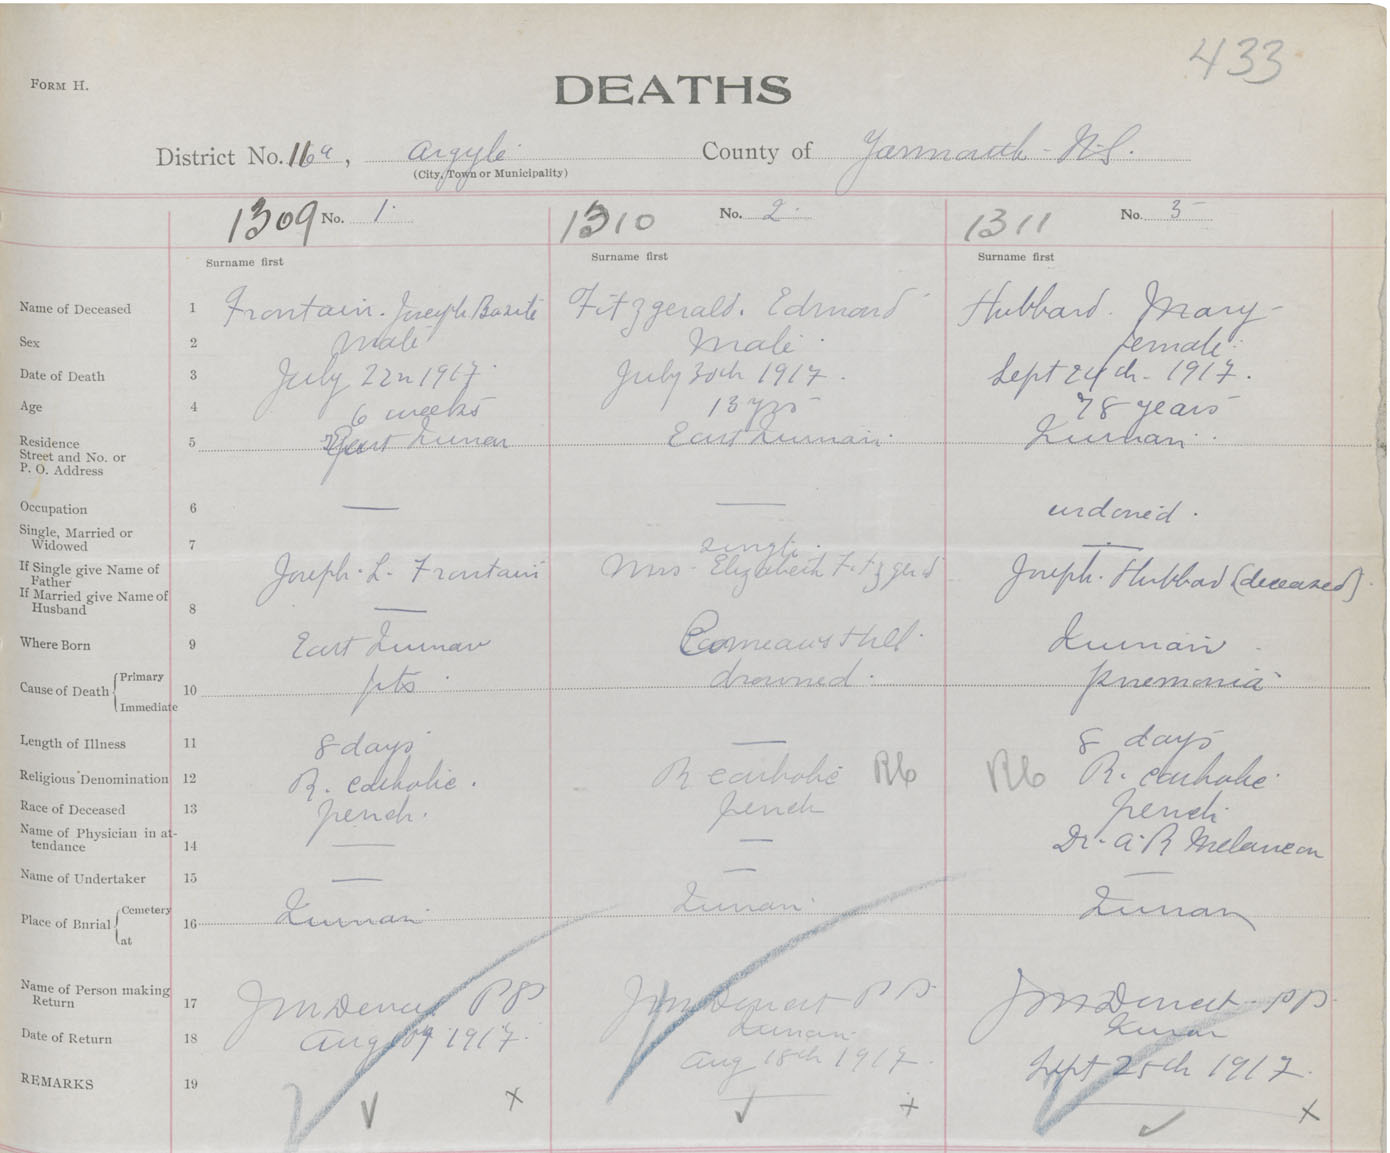 433
FORM H.
DEATHS
District No. 116a, Argyle County of Yarmouth - N.S.
(City, Town or Municipality)
1309 No. 1. 1310 No. 2. 1311 No. 3
Surname first Surname first Surname first
Name of Deceased 1 Frontain. Joseph Basile Fitzgerald. Edmond Hubbard. Mary
Sex 2 male Male. female.
Date of Death 3 July 22n 1917. July 30th 1917. Sept 24th - 1917.
Age 4 6 weeks 13 yrs 78 years
Residence 5 East East
Street and No. or
P. O. Address
Occupation 6 — —
Single, Married or
Widowed 7 single. —
If Single give Name of
Father Joseph. L. Frontain Mrs. Elizabeth Joseph. Hubbard (deceased).
If Married give Name of
Husband 8 —
Where Born 9 East Comeaus Hill
Cause of Death Primary 10 fits. drowned. pnemonia
Immediate
Length of Illness 11 8 days — 8 days
Religious Denomination 12 R. catholic. R catholic RC RC R. catholic
Race of Deceased 13 french. french french
Name of Physician in at-
tendance 14 — — Dr. A. R Melancon
Name of Undertaker 15 — — —
Place of Burial Cemetery 16
at
Name of Person making
Return 17 PP PP PP
Date of Return 18 Aug 1917. Aug 18th 1917. Sept 25th 1917.
REMARKS 19